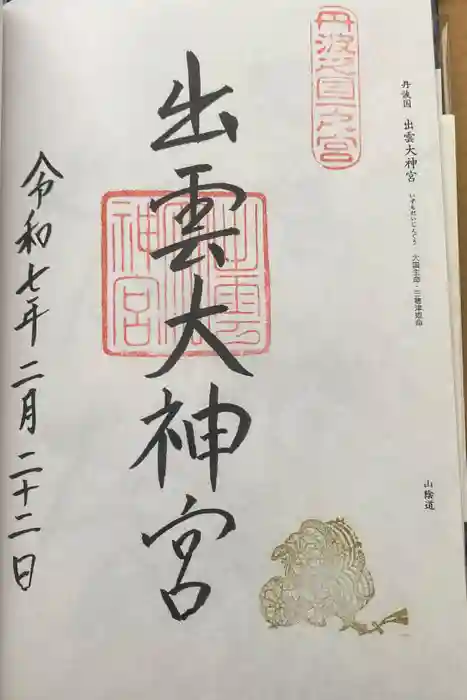 丹波国 出雲大神宮 いずもだいじんぐう 大国主命・三穂津姫命
山陰道
丹波之國一之宮
出雲大神宮
出雲大神宮
令和七年二月二十二日